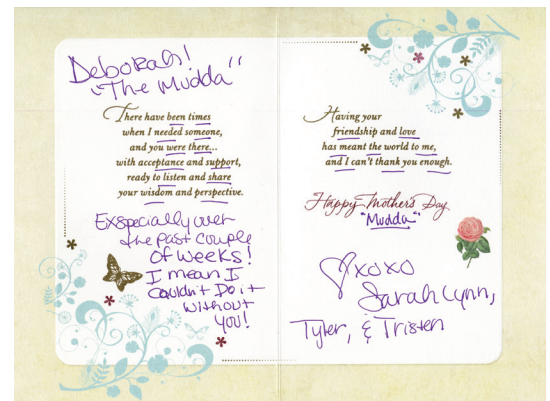 Deborah!
"The Mudda"
There have been times
when I needed someone,
and you were there...
with acceptance and support,
ready to listen and share
your wisdom and perspective.
Exspecially over
the past couple
of weeks!
I mean I
Couldn't Do it
without
you!
Having your
friendship and love
has meant the world to me,
and I can't thank you enough.
Happy Mother's Day
"Mudda"
xoxo
Sarah Lynn,
Tyler, & Tristen